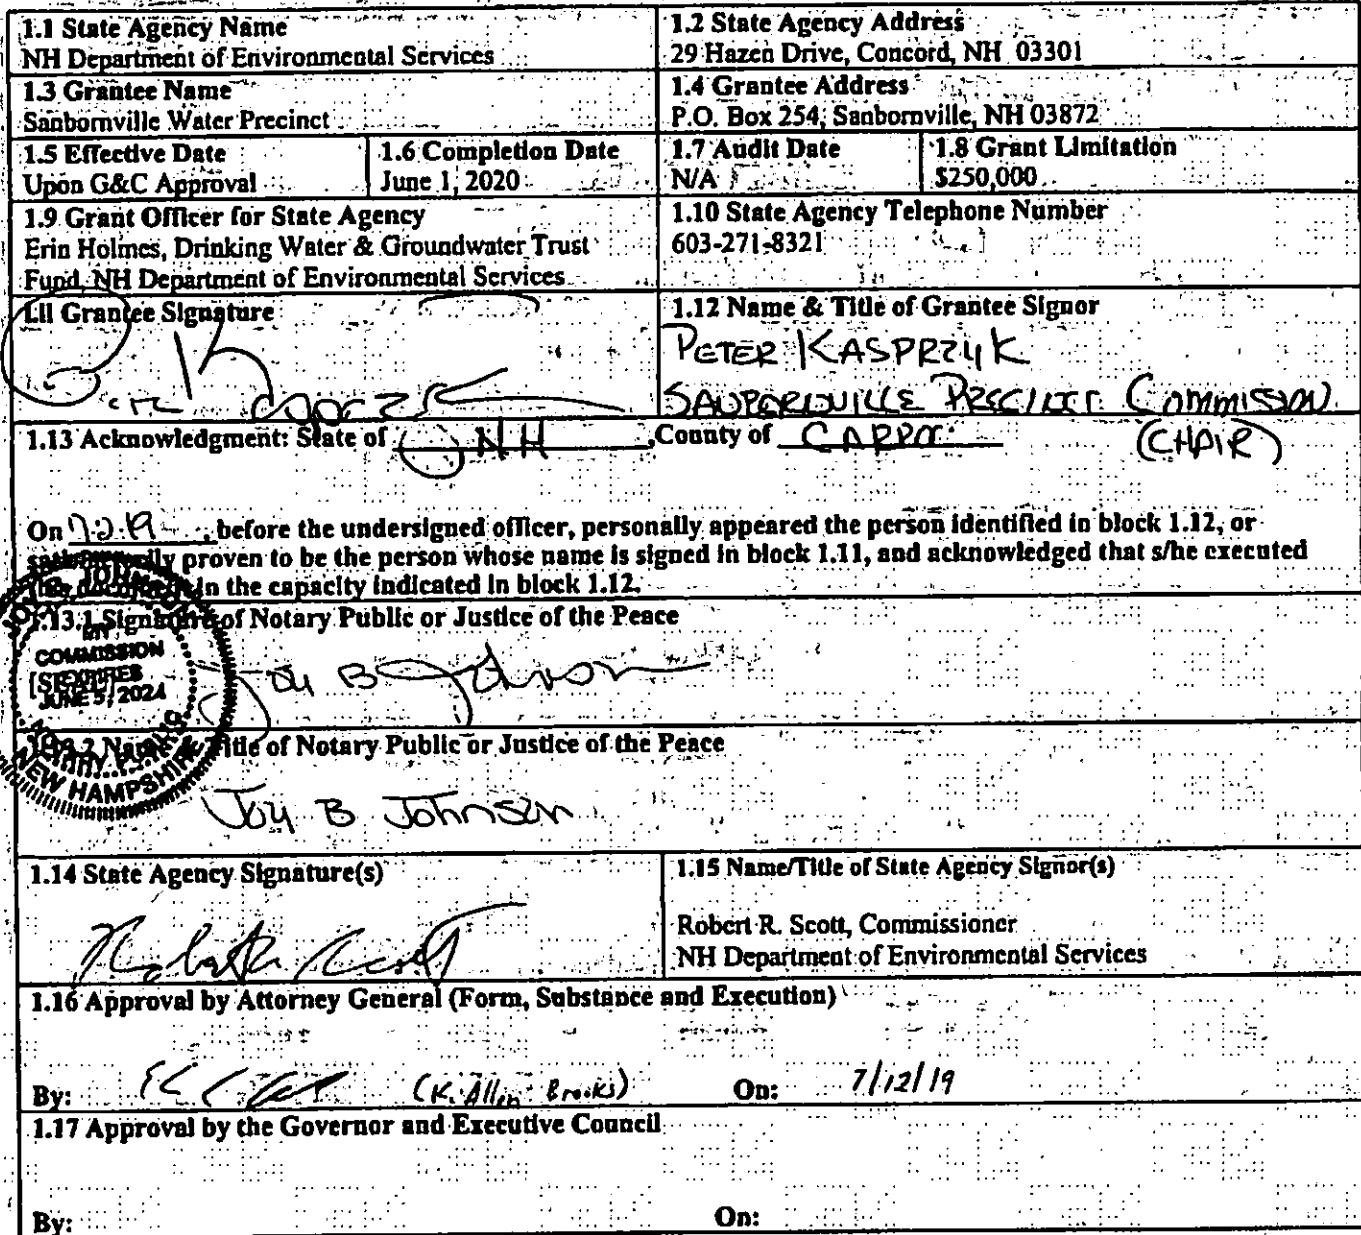 1.1 State Agency Name
NH Department of Environmental Services
1.2 State Agency Address
29 Hazen Drive, Concord, NH 03301
1.3 Grantee Name
Sanbornville Water Precinct
1.4 Grantee Address
P.O. Box 254, Sanbornville, NH 03872
1.5 Effective Date
Upon G&C Approval
1.6 Completion Date
June 1, 2020
1.7 Audit Date
N/A
1.8 Grant Limitation
$250,000
1.9 Grant Officer for State Agency
Erin Holmes, Drinking Water & Groundwater Trust
Fund, NH Department of Environmental Services
1.10 State Agency Telephone Number
603-271-8321
1.11 Grantee Signature
1.12 Name & Title of Grantee Signor
PETER KASPRZYK
SANBORNVILLE PRECINCT COMMISSION
(CHAIR)
1.13 Acknowledgment: State of NH, County of
On , before the undersigned officer, personally appeared the person identified in block 1.12, or
satisfactorily proven to be the person whose name is signed in block 1.11, and acknowledged that s/he executed
this document in the capacity indicated in block 1.12.
1.13.1 Signature of Notary Public or Justice of the Peace
MY
COMMISSION
EXPIRES
JUNE 5, 2024
NEW HAMPSHIRE
Joy B Johnson
1.13.2 Name & Title of Notary Public or Justice of the Peace
Joy B Johnson
1.14 State Agency Signature(s)
1.15 Name/Title of State Agency Signor(s)
Robert R. Scott, Commissioner
NH Department of Environmental Services
1.16 Approval by Attorney General (Form, Substance and Execution)
By: (K. Allen Brooks) On: 7/12/19
1.17 Approval by the Governor and Executive Council
By: On: